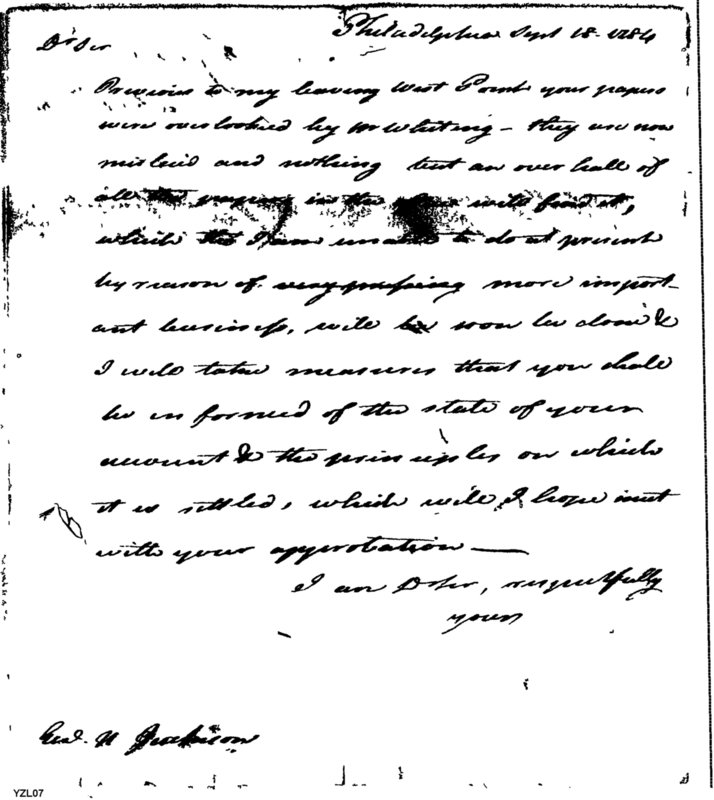 Philadelphia Sept 18. 1784
Dr Sir
Previous to my leaving West Point your papers
were overlooked by Mr Whiting – they are now
mislaid and nothing but an over hall of
all the papers in the will find it,
which the I am unable to do at present
by reason of very pressing more import-
ant business, will be soon be done &
I will take measures that you shall
be informed of the state of your
account & the principles on which
it is settled, which will, I hope meet
with your approbation —
I am Dr Sir, respectfully
yours
Genl. H Jackson
YZL07